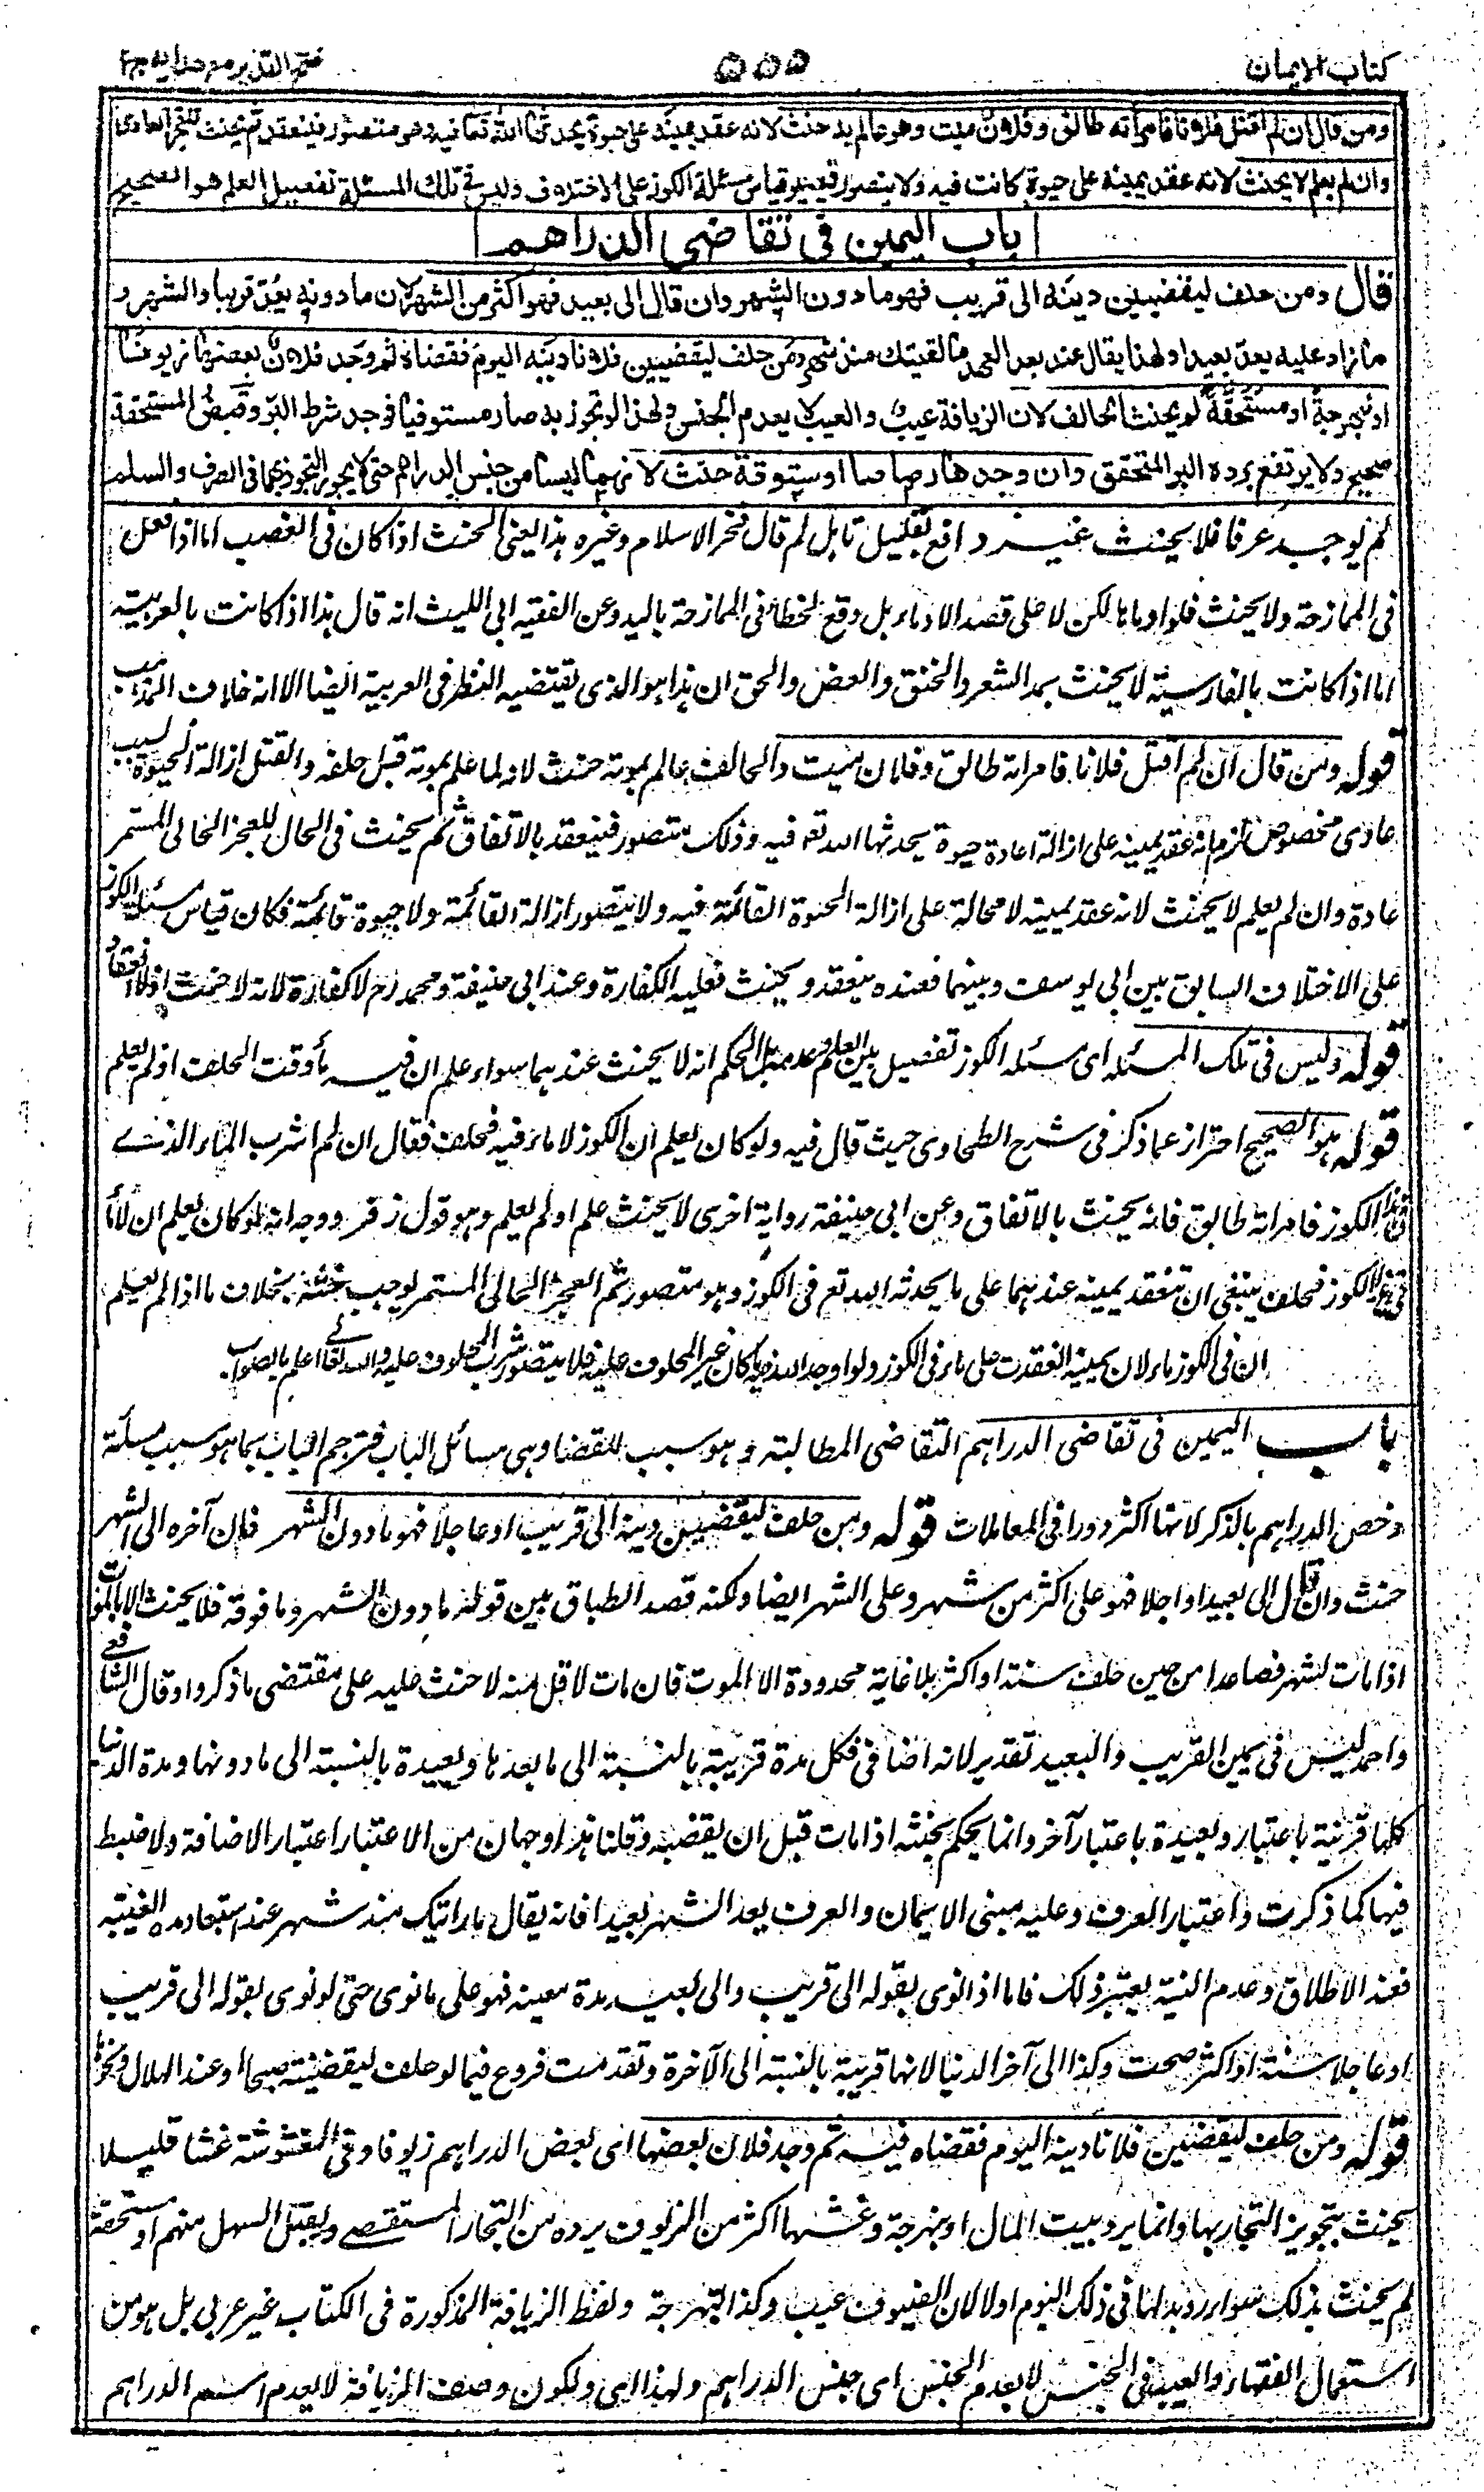 كتاب الايمان
٥٥٥
فتح القدير مع هدايه ج٢
ومن قال ان لم اقتل فلانا فامرأته طالق وفلان ميت وهو عالم به حنث لانه عقد يمينه على حيوة يحدثها الله تعا فيه وهو متصور فينعقد ثم يحنث للعجز العادى
وان لم يعلم لا يحنث لانه عقد يمينه على حيوة كانت فيه ولا يتصور فيصير قياس مسئلة الكوز على الاختلاف وليس فى تلك المسئلة تفصيل العلم هو الصحيح
باب اليمين فى تقاضى الدراهم
قال ومن حلف ليقضيين دينه الى قريب فهو ما دون الشهر وان قال الى بعيد فهو اكثر من الشهر لان ما دونه يعد قريبا والشهر و
ما زاد عليه يعد بعيدا ولهذا يقال عند بعد العهد ما لقيتك منذ شهر ومن حلف ليقضيين فلانا دينه اليوم فقضاه ثم وجد فلان بعضها زيوفا
او نبهرجة او مستحقة لم يحنث الحالف لان الزيافة عيب والعيب لا يعدم الجنس ولهذا لو تجوز به صار مستوفيا فوجد شرط البر وقبض المستحقة
صحيح ولا يرتفع برده البر المتحقق وان وجدها رصاصا او ستوقة حنث لانهما ليسا من جنس الدراهم حتى لا يجوز التجوز بهما فى الصرف والسلم
لم يوجد عرفا فلا يحنث غير دافع بقليل تامل ثم قال فخر الاسلام وغيره هذا يعنى الحنث اذا كان فى الغضب اما اذا فعل
فى الممازحة ولا يحنث فلو ادماها لكن لا على قصد الادماء بل وقع الخطاء فى الممازحة باليد وعن الفقيه ابى الليث انه قال هذا اذا كانت بالعربية
اما اذا كانت بالفارسية لا يحنث بمد الشعر والخنق والعض والحق ان هذا هو الذى يقتضيه النظر فى العربية ايضا الا انه خلاف المذهب
قوله ومن قال ان لم اقتل فلانا فامراته طالق وفلان ميت والحالف عالم بموته حنث لانه لما علم بموته قبل حلفه والقتل ازالة الحيوة بسبب
عادى مخصوص لزم انه عقد يمينه على ازالة اعادة حيوة يحدثها الله تعه فيه وذلك متصور فينعقد بالاتفاق ثم يحنث فى الحال للعجز الحالى المستمر
عادة وان لم يعلم لا يحنث لانه عقد يمينه لا محالة على ازالة الحيوة القائمة فيه ولا يتصور ازالة القائمة ولا حيوة قائمة فكان قياس مسئلة الكوز
على الاختلاف السابق بين ابى يوسف وبينهما فعنده ينعقد ويحنث فعليه الكفارة وعند ابى حنيفة ومحمد رح لا كفارة لانه لا حنث اذ لا انعقاد
قوله وليس فى تلك المسئله اى مسئله الكوز تفصيل بين العلم وعدمه بل الحكم انه لا يحنث عندهما سواء علم ان فيه ماء وقت الحلف او لم يعلم
قوله هو الصحيح احتراز عما ذكر فى شرح الطحاوى حيث قال فيه ولو كان يعلم ان الكوز لا ماء فيه فحلف فقال ان لم اشرب الماء الذى
فى هذا الكوز فامراته طالق فانه يحنث بالاتفاق وعن ابى حنيفة رواية اخرى لا يحنث علم او لم يعلم وهو قول زفر ووجه انه لو كان يعلم ان لا ماء
فى الكوز فحلف ينبغى ان تنعقد يمينه عندهما على ما يحدثه الله تعه فى الكوز وهو متصور ثم العجز الحالى المستمر يوجب حنثه بخلاف ما اذا لم يعلم
ان فى الكوز ماء لان يمينه انعقدت على ماء فى الكوز ولو اوجد الله فيه ماء كان غير المحلوف عليه فلا يتصور شرب المحلوف عليه والله تعالى اعلم بالصواب
باب اليمين فى تقاضى الدراهم التقاضى المطالبة وهو سبب للقضا وهى مسائل الباب فترجم الباب بما هو سبب مسئلة
وخص الدراهم بالذكر لانها اكثر دورا فى المعاملات قوله ومن حلف ليقضيين دينه الى قريب او عاجلا فهو ما دون الشهر فان آخره الى الشهر
حنث وان قال الى بعيد او اجلا فهو على اكثر من شهر وعلى الشهر ايضا ولكنه قصد الطباق بين قوله ما دون الشهر وما فوقه فلا يحنث الا بالموت
اذا مات لشهر فصاعدا من حين حلف سنة او اكثر بلا غاية محدودة الا الموت فان مات لاقل منه لا حنث عليه على مقتضى ما ذكروا وقال الشافعى
واحمد ليس فى يمين القريب والبعيد تقدير لانه اضافى فكل مدة قريبة بالنسبة الى ما بعدها وبعيدة بالنسبة الى ما دونها ومدة الدنيا
كلها قريبة باعتبار وبعيدة باعتبار آخر وانما يحكم بحنثه اذا مات قبل ان يقضيه وقلنا هذا وجهان من الاعتبار اعتبار الاضافة ولا ضبط
فيها كما ذكرت واعتبار العرف وعليه مبنى الايمان والعرف يعد الشهر بعيدا فانه يقال ما رايتك منذ شهر عند استبعاد مدة الغيبة
فعند الاطلاق وعدم النية يعتبر ذلك فاما اذا نوى بقوله الى قريب والى بعيد مدة معينة فهو على ما نوى حتى لو نوى بقوله الى قريب
او عاجلا سنة او اكثر صحت وكذا الى آخر الدنيا لانها قريبة بالنسبة الى الآخرة وتقدمت فروع فيما لو حلف ليقضينه صباحا او عند الهلال ونحوها
قوله ومن حلف ليقضيين فلانا دينه اليوم فقضاه فيه ثم وجد فلان بعضها اى بعض الدراهم زيوفا وهى المغشوشة غشا قليلا
بحيث يتجوز التجار بها وانما يرده بيت المال او نبهرجة وغشها اكثر من الزيوف يرده من التجار المستقصى ويقبل السهل منهم او مستحقة
لم يحنث بذلك سواء رد بدلها فى ذلك اليوم او لا لان الفيوف عيب وكذا النبهرجة ولفظ الزيافة المذكورة فى الكتاب غير عربى بل هو من
استعمال الفقهاء والعيب فى الجنس لا يعدم الجنس اى جنس الدراهم ولهذا اى ولكون وصف الزيافة لا يعدم اسم الدراهم